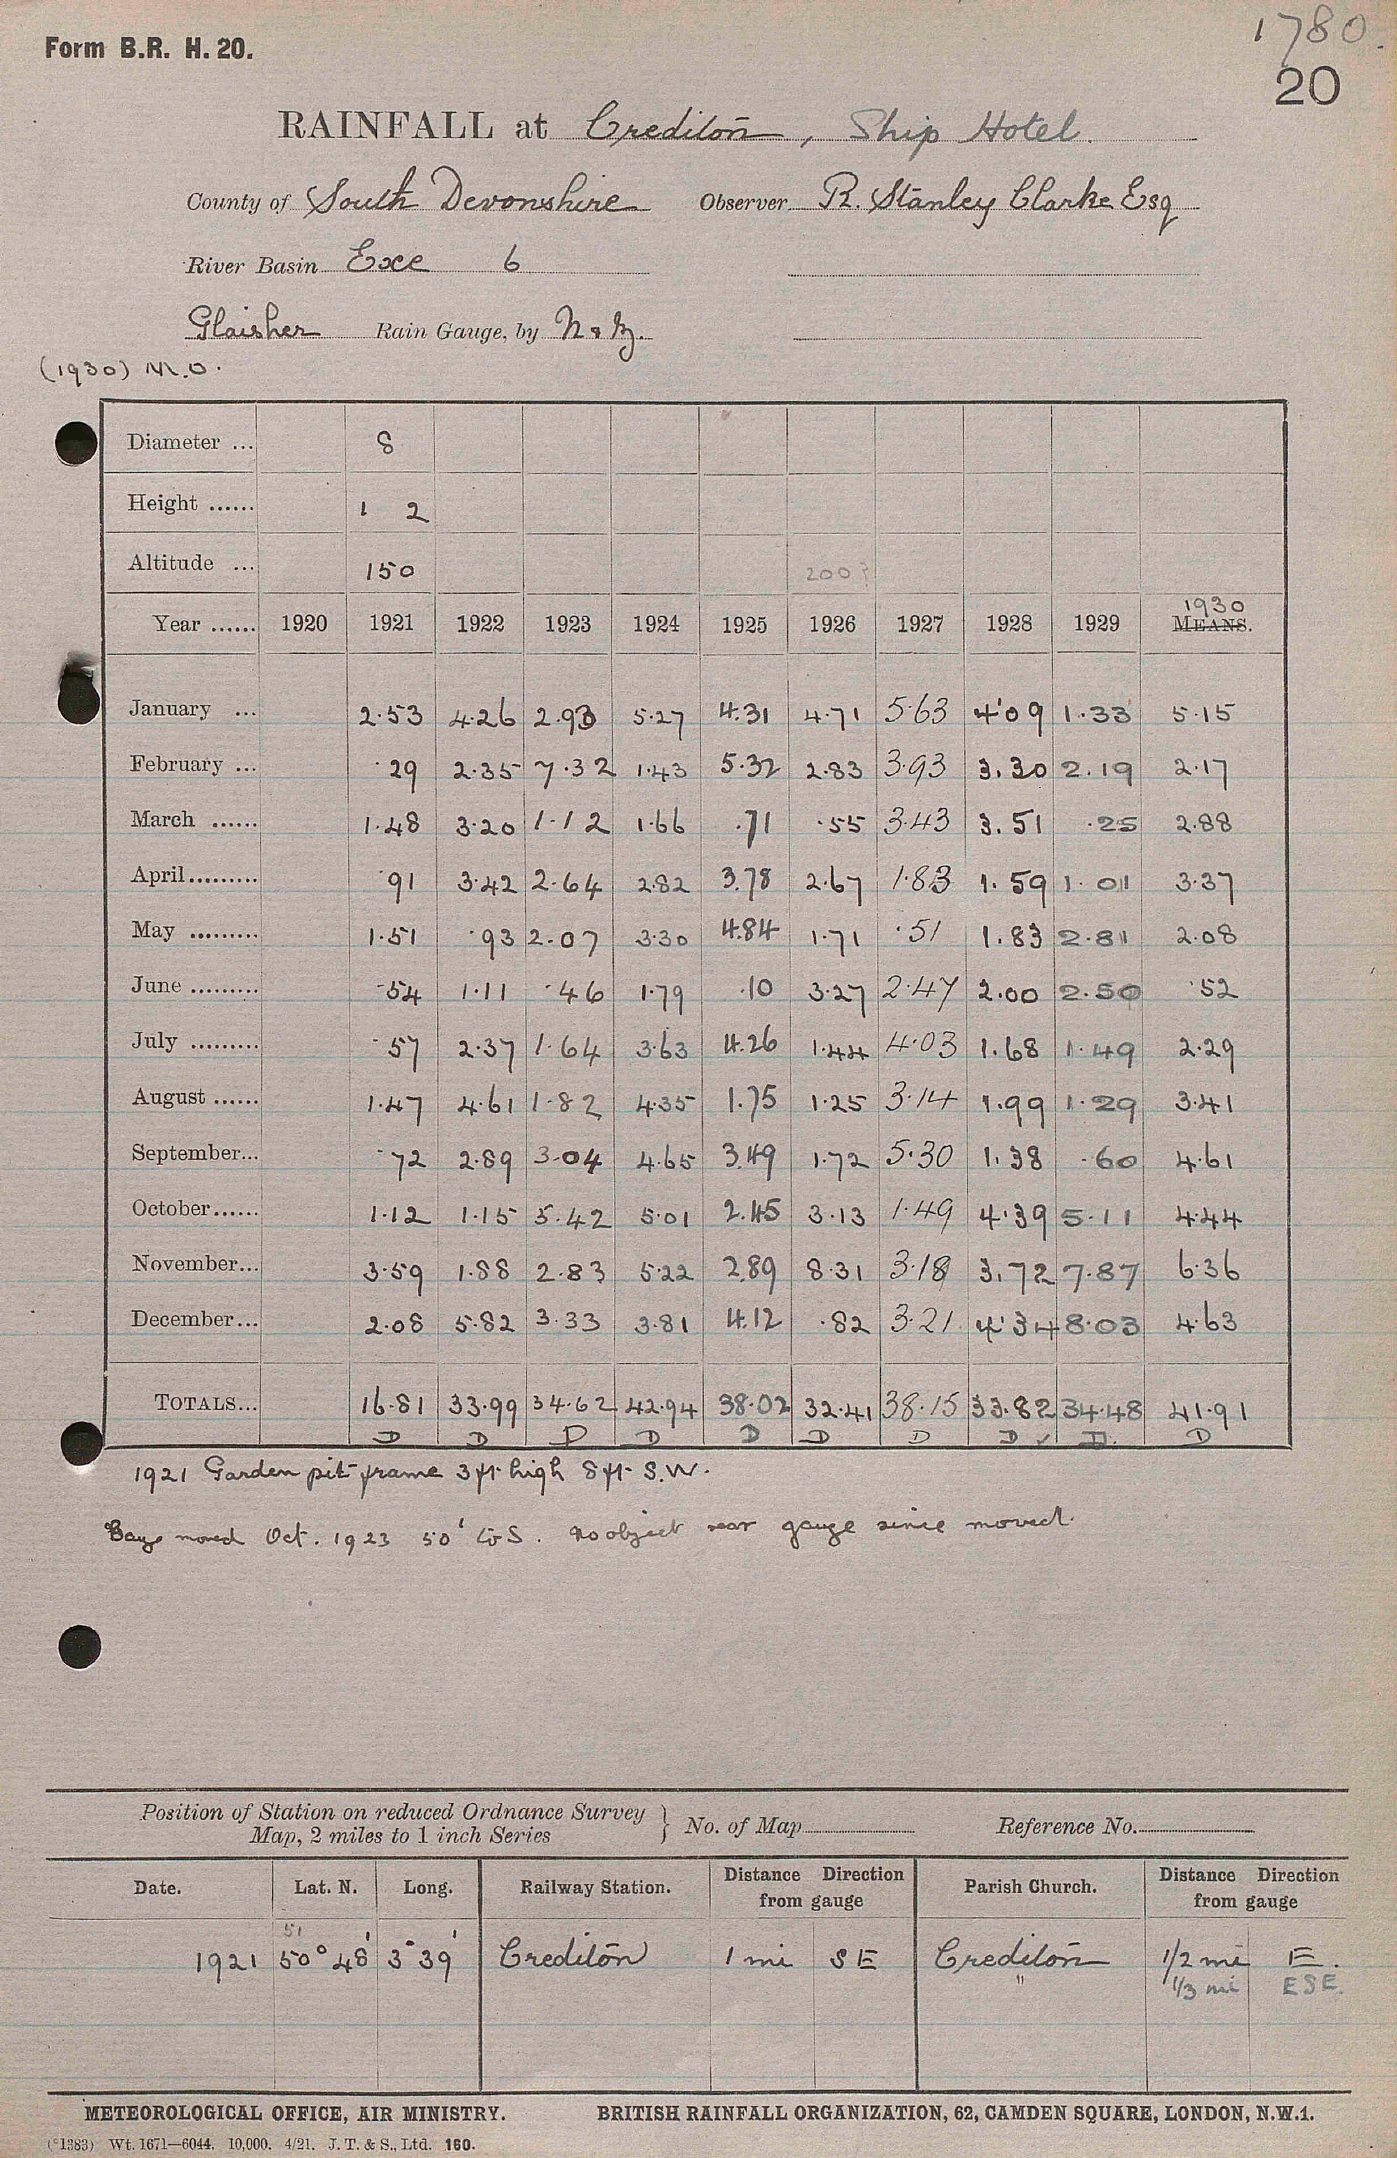 Form B.R. H. 20.
1780.
20
RAINFALL at Crediton, Ship Hotel.
County of South Devonshire Observer R. Stanley Clarke Esq
River Basin Exe 6
Glaisher Rain Gauge, by N & Z.
(1930) M.O.
Diameter ... 8
Height ...... 1 2
Altitude ... 150 200?
1930
Year ...... 1920 1921 1922 1923 1924 1925 1926 1927 1928 1929 MEANS.
January ... 2.53 4.26 2.93 5.27 4.31 4.71 5.63 4.09 1.33 5.15
February ... .29 2.35 7.32 1.43 5.32 2.83 3.93 3.30 2.19 2.17
March ...... 1.48 3.20 1.12 1.66 .71 .55 3.43 3.51 .25 2.88
April......... .91 3.42 2.64 2.82 3.78 2.67 1.83 1.59 1.01 3.37
May ......... 1.51 .93 2.07 3.30 4.84 1.71 .51 1.83 2.81 2.08
June ......... .54 1.11 .46 1.79 .10 3.27 2.47 2.00 2.50 .52
July ......... .57 2.37 1.64 3.63 4.26 1.44 4.03 1.68 1.49 2.29
August ...... 1.47 4.61 1.82 4.35 1.75 1.25 3.14 1.99 1.29 3.41
September... .72 2.89 3.04 4.65 3.49 1.72 5.30 1.38 .60 4.61
October...... 1.12 1.15 5.42 5.01 2.45 3.13 1.49 4.39 5.11 4.44
November... 3.59 1.88 2.83 5.22 2.89 8.31 3.18 3.72 7.87 6.36
December... 2.08 5.82 3.33 3.81 4.12 .82 3.21 4.34 8.03 4.63
TOTALS... 16.81 33.99 34.62 42.94 38.02 32.41 38.15 33.82 34.48 41.91
D D D D D D D D ✓ D. D
1921 Garden pit frame 3 ft high 8 ft S.W.
moved Oct. 1923 50' to S. No object near gauge since moved.
Position of Station on reduced Ordnance Survey
Map, 2 miles to 1 inch Series } No. of Map Reference No.
Date. Lat. N. Long. Railway Station. Distance Direction from gauge Parish Church. Distance Direction from gauge
51
1921 50° 48' 3° 39' Crediton 1 mi SE Crediton 1/2 mi E.
" 1/3 mi ESE.
METEOROLOGICAL OFFICE, AIR MINISTRY. BRITISH RAINFALL ORGANIZATION, 62, CAMDEN SQUARE, LONDON, N.W.1.
(*1383) Wt. 1671—6044. 10,000. 4/21. J. T. & S., Ltd. 160.